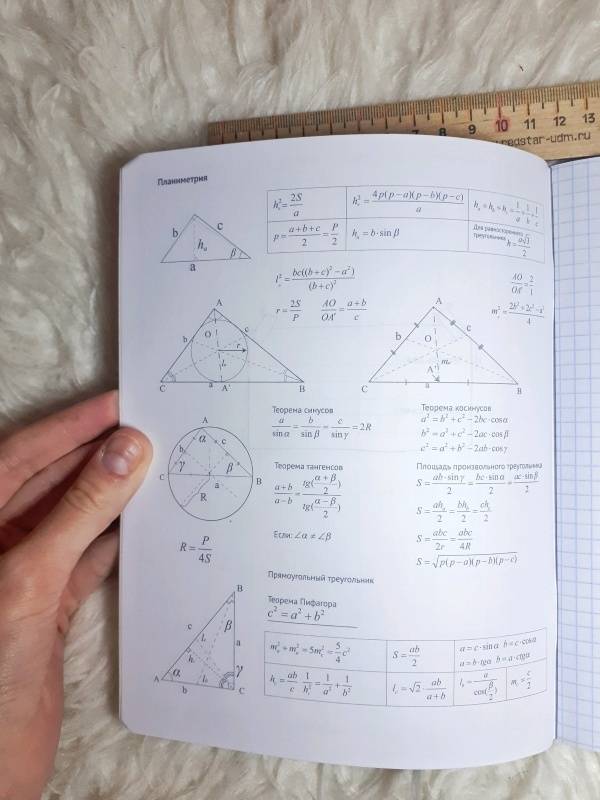 10 11 12 13
redstar-udm.ru
Планиметрия
h²c = 2S/a
h²c = 4p(p−a)(p−b)(p−c)/a
p = (a+b+c)/2 = P/2
ha = b·sinβ
Для равностороннего
треугольника h = a√3/2
b c ha β a
l² = bc((b+c)²−a²)/(b+c)²
AO/OA' = 2/1
r = 2S/P
AO/OA' = (a+b)/c
A O b c r C a A' B
A O b c A' a C B
Теорема синусов
a/sinα = b/sinβ = c/sinγ = 2R
Теорема косинусов
a² = b² + c² − 2bc·cosα
b² = a² + c² − 2ac·cosβ
c² = a² + b² − 2ab·cosγ
A α b c C γ β B a R
Теорема тангенсов
(a+b)/(a−b) = tg((α+β)/2)/tg((α−β)/2)
Если: ∠α ≠ ∠β
Площадь произвольного треугольника
S = ab·sinγ/2 = bc·sinα/2 = ac·sinβ/2
S = aha/2 = bhb/2 = chc/2
S = abc/2r = abc/4R
S = √(p(p−a)(p−b)(p−c))
R = P/4S
Прямоугольный треугольник
Теорема Пифагора
c² = a² + b²
B β c a A α b γ C
S = ab/2
a = c·sinα b = c·cosα
a = b·tgα b = a·ctgα
hc = ab/c 1/h²c = 1/a² + 1/b²
lc = √2·ab/(a+b)
mc = c/2